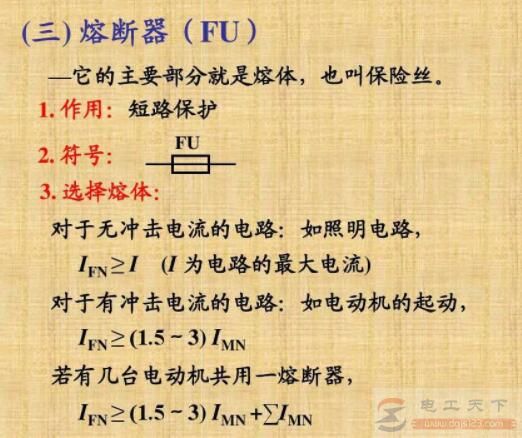 (三) 熔断器（FU）
—它的主要部分就是熔体，也叫保险丝。
1. 作用：短路保护
2. 符号：
FU
3. 选择熔体：
对于无冲击电流的电路：如照明电路，
IFN≥I (I 为电路的最大电流)
对于有冲击电流的电路：如电动机的起动，
IFN≥(1.5~3) IMN
若有几台电动机共用一熔断器，
IFN≥(1.5~3) IMN+∑IMN
电工天下
www.dgjs123.com